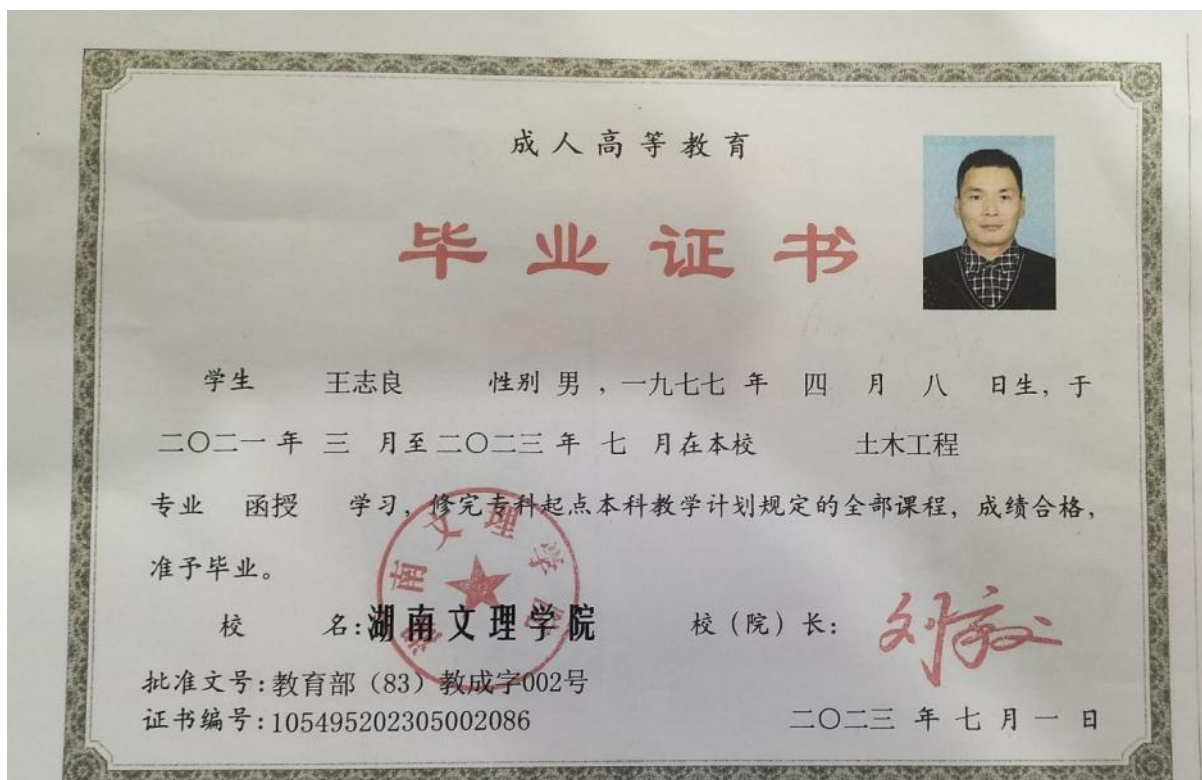 成人高等教育
毕业证书
学生 王志良 性别 男 ，一九七七 年 四 月 八 日生，于
二〇二一 年 三 月至 二〇二三 年 七 月在本校 土木工程
专业 函授 学习，修完专科起点本科教学计划规定的全部课程，成绩合格，
准予毕业。
校 名：湖南文理学院 校（院）长：
湖南文理学院
批准文号：教育部（83）教成字002号
证书编号：105495202305002086 二〇二三 年 七 月 一 日